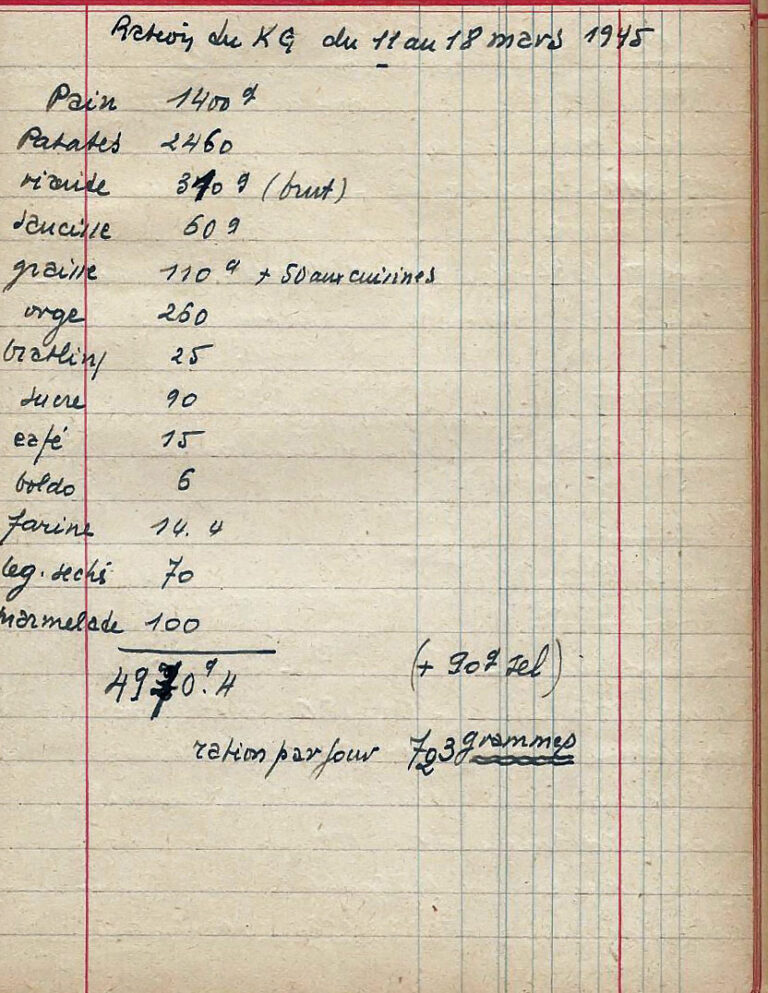 Ration du KG du 11 au 18 mars 1945
Pain 1400 g
Patates 2460
viande 310 g (brut)
saucisse 60 g
graisse 110 g + 50 aux cuisines
orge 260
bratling 25
sucre 90
café 15
boldo 6
farine 14.4
leg. secs 70
marmelade 100
4920 g.4 (+ 90 g sel)
ration par jour 703 grammes